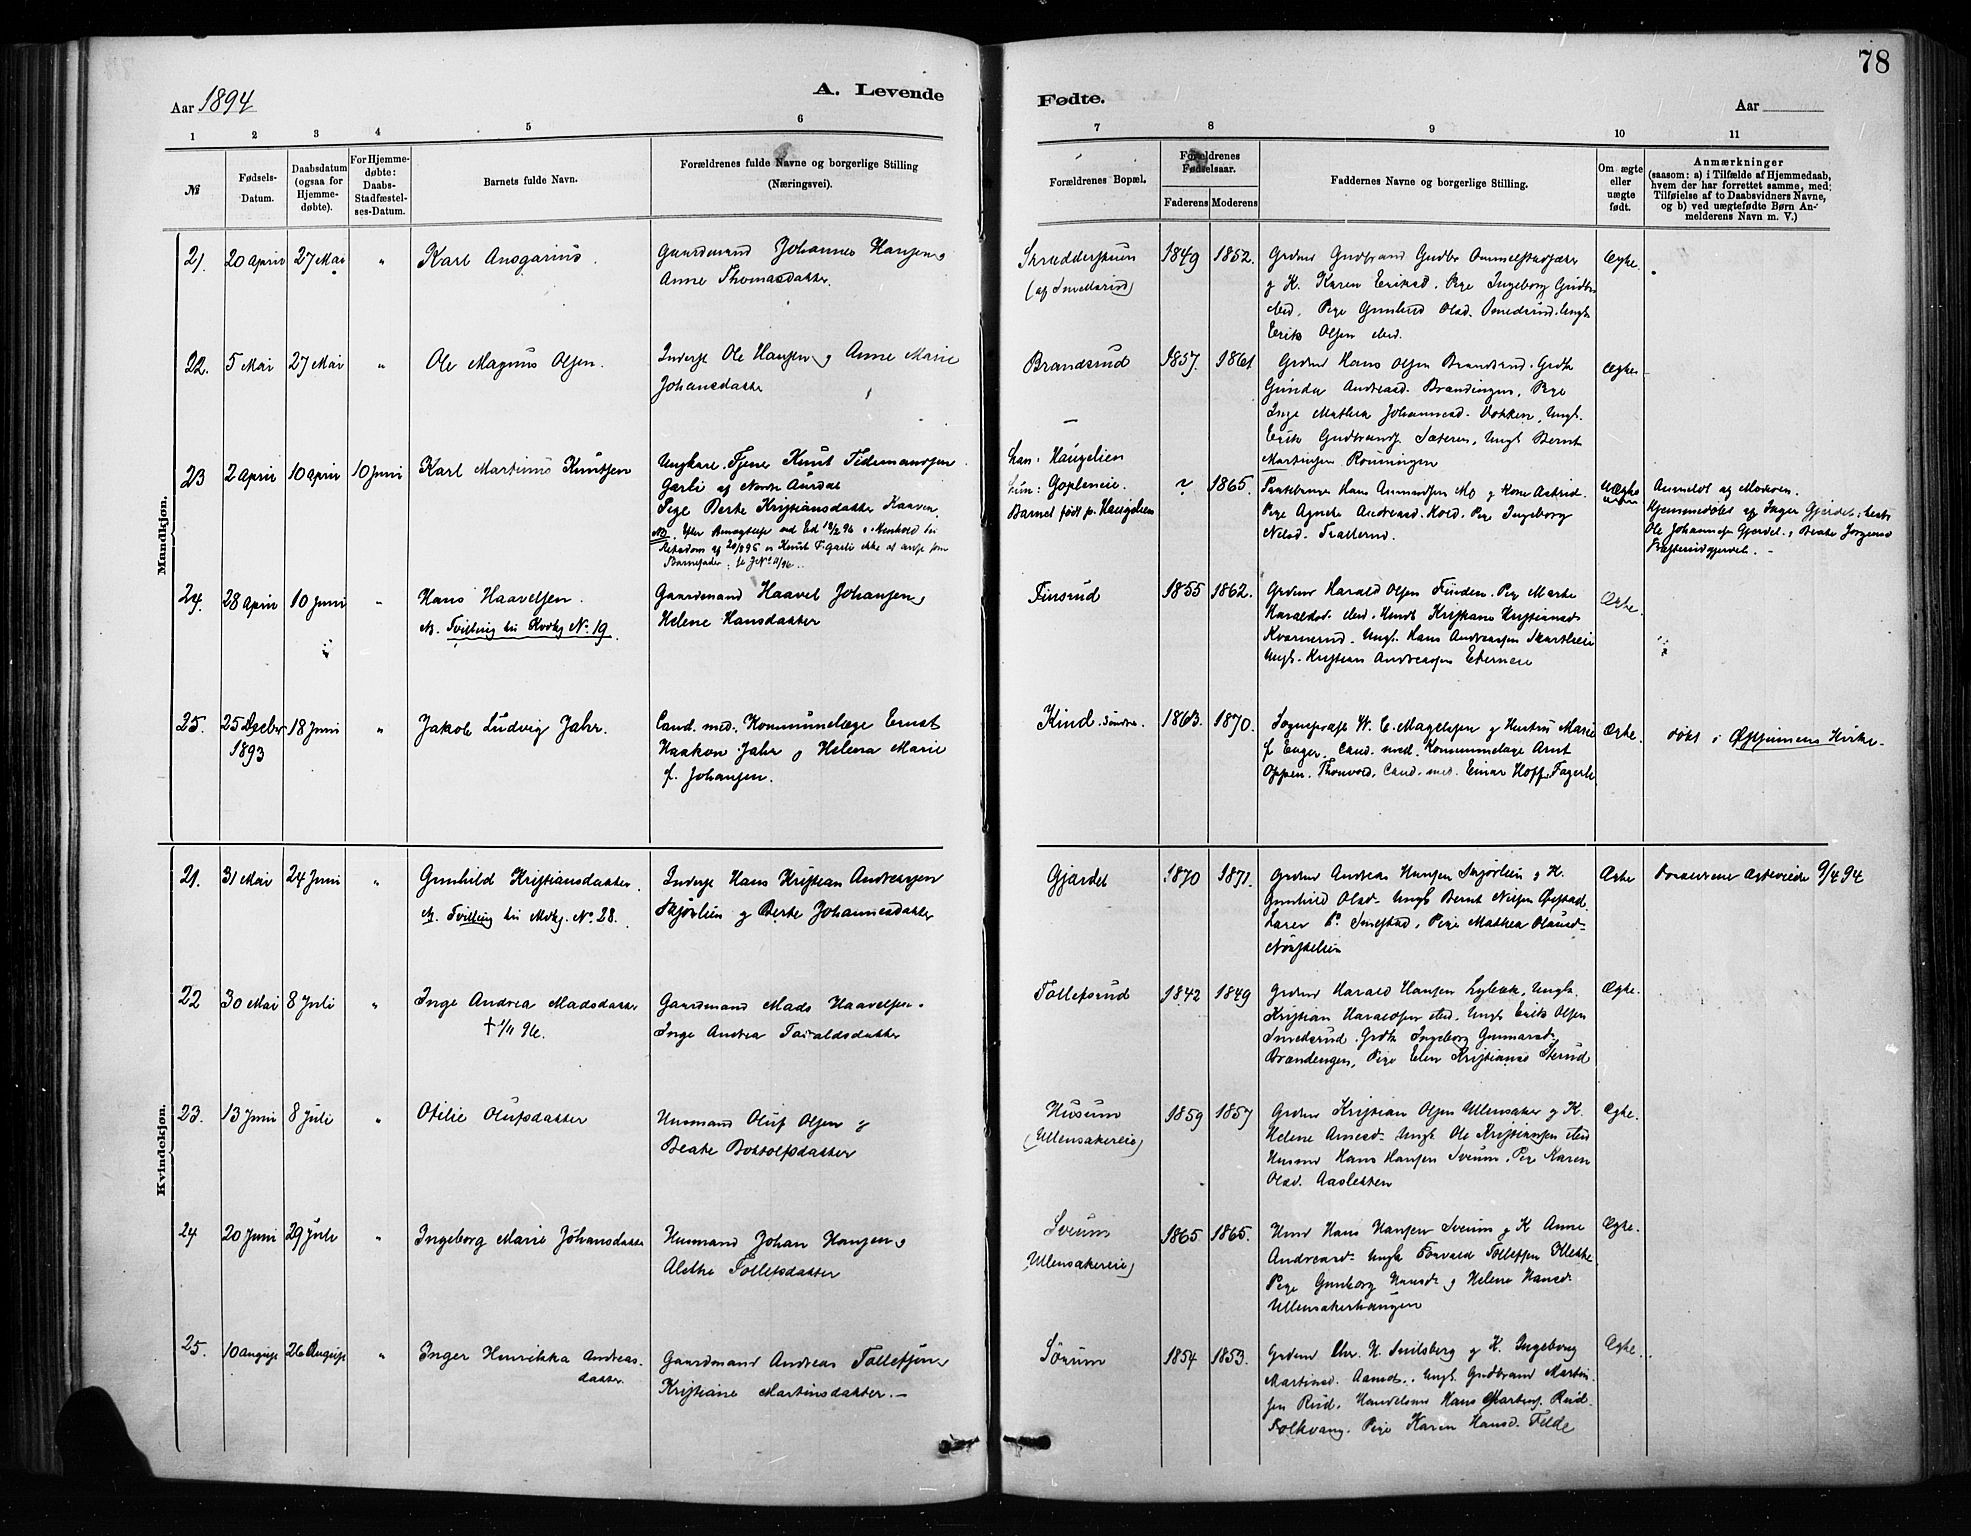 78
Aar 1894
A. Levende
Fødte.
Aar
1 2 3 4 5 6 7 8 9 10 11
№
Fødsels-
Datum.
Daabsdatum
(ogsaa for
Hjemme-
døbte).
For Hjemme-
døbte:
Daabs-
Stadfæstel-
ses-Datum.
Barnets fulde Navn.
Forældrenes fulde Navne og borgerlige Stilling
(Næringsvei).
Forældrenes Bopæl.
Forældrenes
Fødselsaar.
Faderens Moderens
Faddernes Navne og borgerlige Stilling.
Om ægte
eller
uægte
født.
Anmærkninger
(saasom: a) i Tilfælde af Hjemmedaab,
hvem der har forrettet samme, med
Tilføielse af to Daabsvidners Navne,
og b) ved uægtefødte Børn An-
melderens Navn m. V.)
Mandkjøn.
21. 20 April 27 Mai " Karl Ansgarius.
Gaardmand Johannes Hansen og
Anne Thomasdatter.
1849 1852.
Grdmd Gudbrand Gudbr.
og K. Karen Eriksd. Pige Ingeborg Gudbr.
Erik Olsen
Ægte.
22. 5 Mai 27 Mai " Ole Magnus Olsen.
Inderst Ole Hansen og Anne Marie
Johansdatter
Brandsrud 1857. 1861
Grdmd Hans Olsen Brandsrud.
Andreasd. Brandingen, Pige
Inge Mathea Johannesd. Bakken, Ungk.
Erik Gudbrands. Sæteren, Ungk Bernt
Martinsen Rønningen
Ægte
23 2 April 10 April 10 Juni Karl Martinius Knutsen
Ungkarl. Tjener Knut Tidemandsen
Garli af Nordre Aurdal
Pige Berte Kristiansdatter Haaven.
Han: Haugelien
Hun: Gopleneie.
Barnet født p. Haugelien
? 1865.
Hans Amundsen Mo og Kone Astrid.
Pige Agnethe Andreasd. Hold. Pige Ingeborg
Nilsd.
Uægte
Anmeldt af Moderen.
Hjemmedøbt af Inger Gjerdet: test:
Ole Johannesen Gjerdet. og Beate Jørgensd
24. 28 April 10 Juni " Hans Haavelsen.
NB. Tvilling til Kvdkj No. 19.
Gaardmand Haavel Johansen og
Helene Hansdatter
Finsrud 1855 1862.
Grdmd Harald Olsen Finden. Pige Marthe
Haraldsd. sted.
Ungk. Hans Andreassen
Ungk. Kristian Andreassen
Ægte.
25. 25 Decber
1893 18 Juni " Jakob Ludvig Jahr.
Cand. med. Kommunelæge Ernst
Haakon Jahr og Helena Marie
f. Johansen.
Kind. søndre 1863. 1870.
Sognepræst W. C. Magelssen og Hustru Marie
f. Enger, Cand. med. Kommunelæge Arnt
Oppen. Thonvold. Cand. med. Einar Hoff. Fagerli.
Ægte.
døbt i Østsinnens Kirke.
Kvindekjøn.
21. 31 Mai 24 Juni " Gunhild Kristiansdatter.
NB. Tvilling til Mdkj. No. 28.
Inderst Hans Kristian Andreassen
Skjørlien og Berte Johannesdatter
Gjerdet 1870 1871.
Grdmd Andreas Hansen Skjørlien og K.
Gunhild Olsd. Ungk Bernt Nilsen
Pige Mathea Olausd.
Ægte
Forældrene ægteviede 9/4 94
22 30 Mai 8 Juli " Inge Andrea Madsdatter
† 1/11 96.
Gaardmand Mads Haavelsen.
Inge Andrea Taraldsdatter
Tollefsrud 1842 1849
Grdmd Harald Hansen Lybæk, Ungk.
Kristian Haraldsen sted. Ungk Erik Olsen
Ingeborg Gunnarsd.
Brændengen, Pige Elen Kristiansd.
Ægte.
23. 13 Juni 8 Juli " Otilie Olufsdatter
Husmand Oluf Olsen og
Beate Bottolfsdatter
Husum
(Ullensakereie)
1859 1857
Grdmd Kristian Olsen Ullensaker og K.
Helene Arnesd. Ungk Ole Kristiansen sted
Husmd Hans Hansen Sveum. Pige Karen
Olsd. Aasletten
Ægte.
24 20 Juni 29 Juli " Ingeborg Marie Johansdatter
Husmand Johan Hansen og
Alethe Tollefsdatter
Sveum
Ullensakereie)
1865 1865.
Husmd Hans Hansen Sveum og K Anne
Andreasd. Ungk Torvald Tollefsen
Pige Gunborg Hansd. og Helene Hansd.
Ullensakerhaugen
Ægte.
25. 10 August 26 August " Inger Henrikka Andreas-
datter.
Gaardmand Andreas Tollefsen og
Kristiane Martinsdatter. –
Sørum 1854 1853.
Grdmd Chr. H. Snilsberg og K. Ingeborg
Martinsd. Aamot. Ungk. Gudbrand Martin-
sen Rud. Handelsmd Hans Martins. Rud.
Solkvang. Pige Karen Hansd. Felde
Ægte.